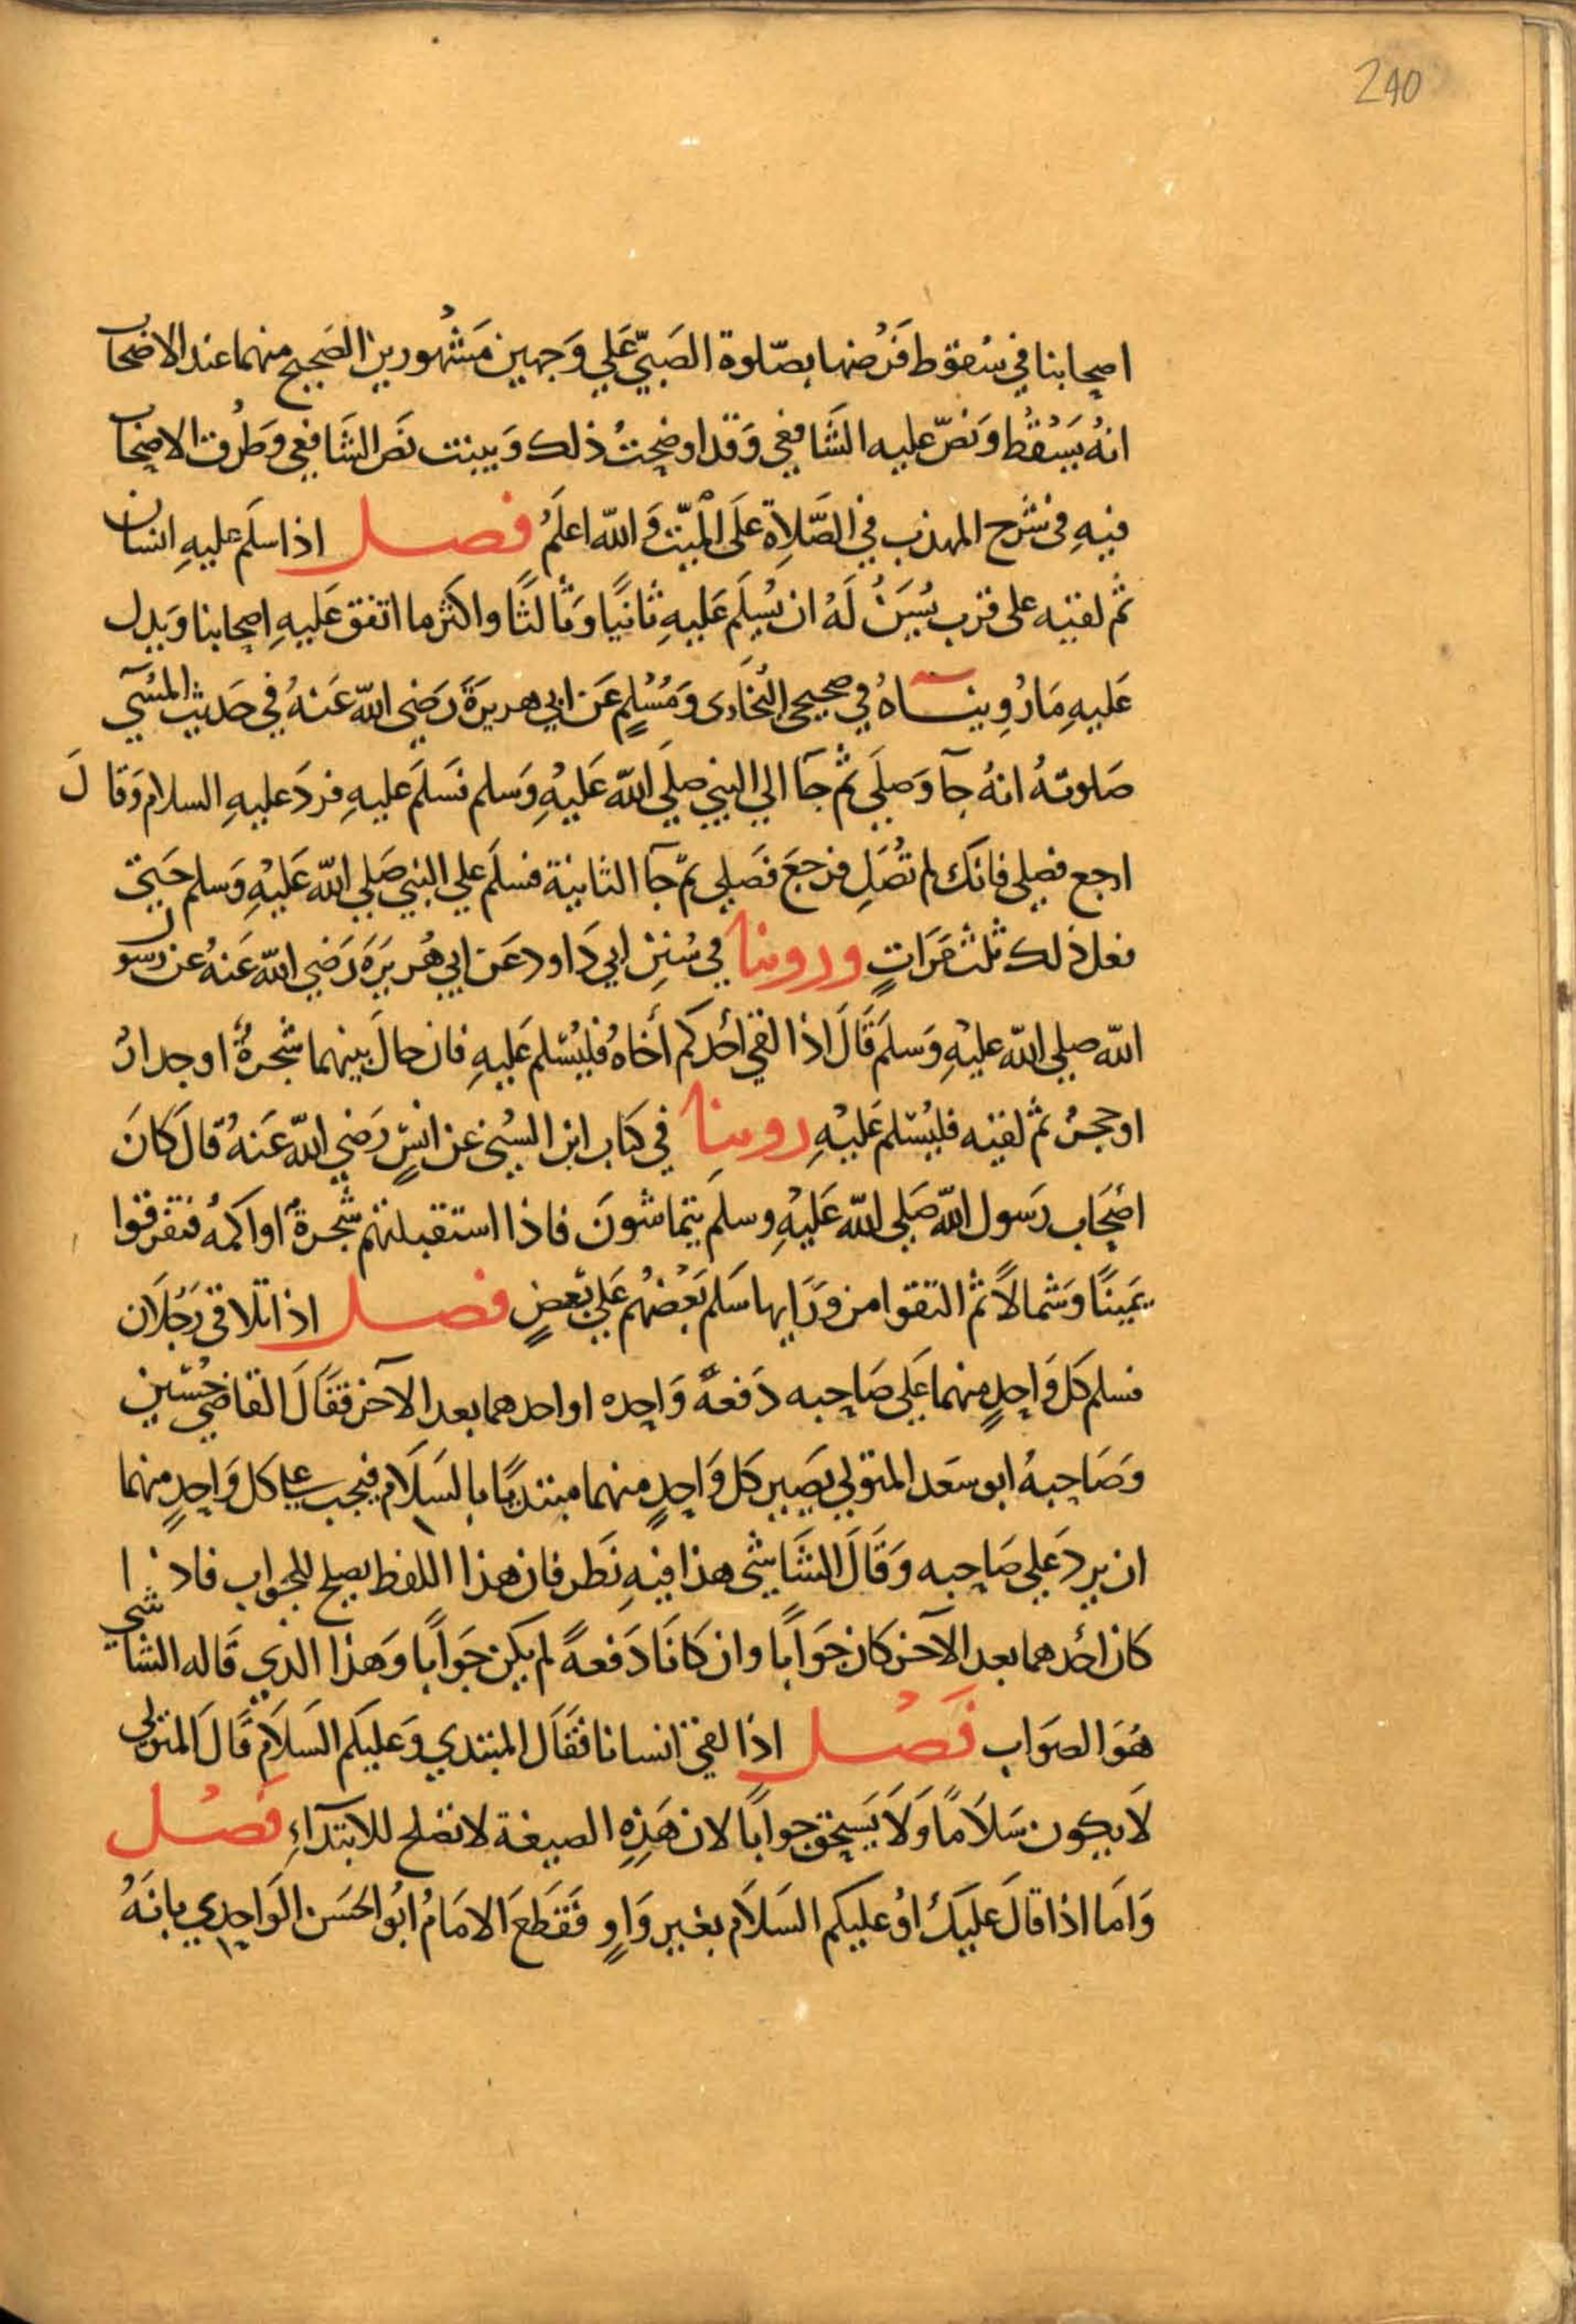 240
اصحابنا في سُقوط فَرْضها بصّلوة الصَبيّ عَلي وَجهين مَشْهورين الصَحيح منهما عند الاصْحاب
انهُ يَسْقُط وَنصّ عليه الشَافعي وَقد اوضحتُ ذلك وَبينت نَصَ الشَافعي وَطُرق الاصْحاب
فيهِ في شَرْح المهذب في الصَّلاةِ عَلَى المَيّت وَاللّه اعلَمُ فصل اذا سلَم عليهِ انسَان
ثم لقيَه على قرب يُسَنُ لَهُ ان يُسَلِم عَليهِ ثانيًا وَثالثًا واكثر ما اتفق عَليهِ اصحابنا وَيدل
عَليهِ مَا رُوِينَاهُ في صحيحي البُخاري وَمُسْلمٍ عَن ابي هريرَةَ رَضي اللّه عَنهُ في حَديث المُسَي
صَلوتهُ انهُ جآ وَصَلَي ثم جَآ الي النبي صَلَي اللّه عَليهِ وَسلم فسَلمَ عليهِ فردَ عليهِ السلام وَقالَ
ارجع فصَلي فانكَ لم تُصَلِ فرجعَ فَصَلي ثم جَآ الثانية فسلَم علي النبي صَلي اللّه عَليْهِ وَسلم حَتيّ
فعل ذلك ثلث مَرَاتٍ وروينا في سُننِ ابي دَاود عَن ابي هُريرَةَ رَضي اللّه عَنهُ عن رسول
اللّه صلي اللّه عليْهِ وَسلَم قَالَ اذا لقي احَدكم اخَاهُ فليُسَلم عَليهِ فان حالَ بينهما شجرةٌ او جدارٌ
او حجرٌ ثم لقيَه فليُسَلم عَليْهِ روينا في كتاب ابن السُني عن انسٍ رَضي اللّه عَنهُ قال كانَ
اصْحَاب رَسول اللّه صَلي اللّه عَليْهِ وسلمَ يتماشونَ فاذا استقبلتهم شجرةٌ او اكمهُ فتفرقوا
يَمينًا وَشمالاً ثم التقوا من وَرَايها سَلم بَعْضهُم عَلي بَعضٍ فصل اذا تلاقي رَجُلاَن
فسلم كل وَاحِدٍ منهما عَلي صَاحِبه دَفعهً وَاحِده او احدهما بعد الآخر فقَالَ القاضي حُسَين
وَصَاحبهُ ابو سَعد المتولي يصَير كل وَاحِدٍ منهما مبتديًا بالسَلاَم فيجب علي كل وَاحِدٍ منهما
ان يرد عَلي صَاحِبه وَقَالَ الشَاشي هذا فيهِ نَظر فان هذا اللفظ يصلح للجواب فاذا
كان احَدهما بعد الآخر كان جَوَابًا وان كانَا دَفعهً لم يكن جَوَابًا وَهذا الذي قَاله الشاشي
هُوَ الصَوَاب فَصْل اذا لقي انسانا فقَال المبتدي وَعَليكم السَلاَم قَالَ المتولي
لاَ يكون سَلاَمًا وَلاَ يَسَتحق جوابًا لان هَذِهِ الصيغة لا تصْلح للابتدآءِ فَصْل
وَامَا اذا قالَ عَليَكَ اوْ عليكم السَلاَم بغير وَاوٍ فَقطعَ الامَامُ ابُو الحسَن الوَاحِدي بانهُ